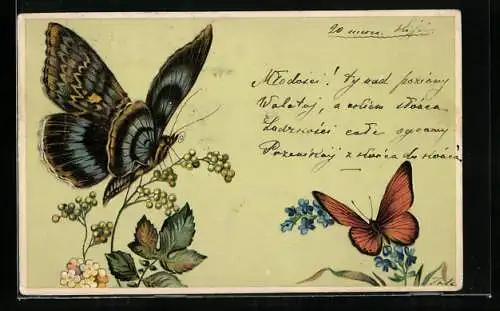 20
Młodości! ty nad poziomy
Wylatuj, a okiem słońca
Ludzkości całe ogromy
Przenikaj z końca do końca